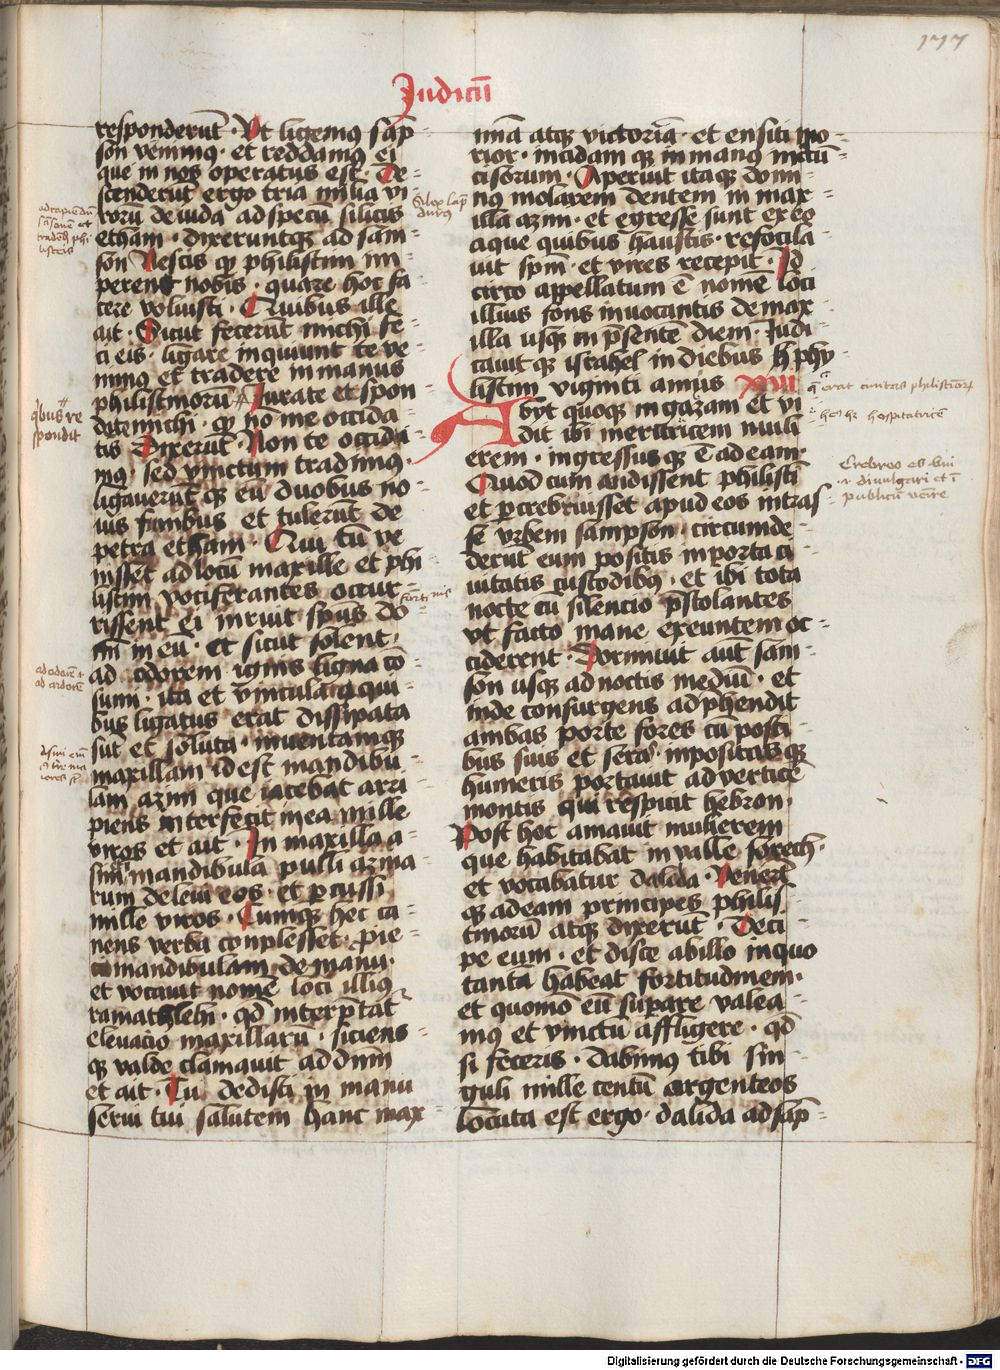 177
Iudicū
responderūt · Vt ligemꝯ sāp
son venimꝯ · et reddamꝯ ei
que in nos operatus est · De
scenderūt ergo tria milia vi
roru de iuda ad specū silicis
etham · dixeruntqꝫ ad sam
son Nescis qꝫ philistim im
perent nobis · quare hoc fa
cere voluisti · Quibus ille
ait · Sicut fecerūt michi fe
ci eis · ligare inquiunt te ve
nimꝯ et tradere in manus
philistinorū Iurate et spon
dete michi · qꝫ nō me occida
tis Dixerūt · Non te occidi
mꝯ · sed vinctum tradimꝯ ·
ligauerūt qꝫ eū duobus no
uis funibus et tulerūt de
petra etham · Qui cū ve
nisset ad locū maxille et phi
listim vociferantes occur
rissent ei irruit spūs do
mī in eū · et sicut solent
ad odorem ignis ligna cō
sumi · ita et vincula qui
bus ligatus erat dissipata
sūt et soluta · inuentamqꝫ
maxillam id est mandibu
lam azini que iacebat arri
piens interfecit in ea mille
viros et ait · In maxilla a
sini mandibula pulli azina
rum deleui eos · et ꝑcussi
mille viros · Cumqꝫ hec ca
nens verba conplesset · ꝓie
cit mandibulam de manu ·
et vocauit nomē loci illiꝯ
ramathlehi · qd interp̄tat
eleuacio maxillarū · siciens
qꝫ valde clamauit ad dnm
et ait · Tu dedisti in manu
serui tui salutem hanc max
imā atqꝫ victoriā · et en siti mo
rior · incidam qꝫ in manꝯ incū
cisorum · Aperuit itaqꝫ domi
nꝯ molarem dentem in max
illa azini · et egresse sunt ex eo
aque quibus haustis · refocila
uit spm · et vires recepit · Id
circo appellatum ē nomē loci
illius fons inuocantis de max
illa usqꝫ in p̄sentē diem · Iudi
cauit qꝫ israhel in diebus phy
listim viginti annis XVI
Abyt quoqꝫ in gazam et vi
dit ibi meretricem muli
erem · ingressusqꝫ ē ad eam ·
Quod cum audissent philisti
et ꝑcrebriusset apud eos intras
se vrbem sampson · circumde
derūt eum positis in porta ci
uitatis custodibꝯ · et ibi tota
nocte cū silencio p̄stolantes
vt facto mane exeuntem oc
ciderent · Dormiuit aut̄ sam
son usqꝫ ad noctis mediū · et
inde consurgens adp̄hendit
ambas porte fores cū posti
bus suis et sera · inpositasqꝫ
humeris portauit ad verticē
montis qui respicit hebron ·
Post hoc amauit mulierem
que habitabat in valle sorech ·
et vocabatur dalida · Venerūt
qꝫ ad eam principes philis
tinorū atqꝫ dixerūt · Deci
pe eum · et disce ab illo in quo
tanta habeat fortitudinem ·
et quomo eū suꝑare valea
mꝯ et vinctū affligere · qd
si feceris · dabimꝯ tibi sin
guli mille centū argenteos
Locuta est ergo · dalida ad sāp
Silex lap
durꝯ
qibus re
spondit
erat ciuitas philistinorū
hospitatricē
Crebreo es bui
i divulgari et ī
publicū venire
Digitalisierung gefördert durch die Deutsche Forschungsgemeinschaft - DFG